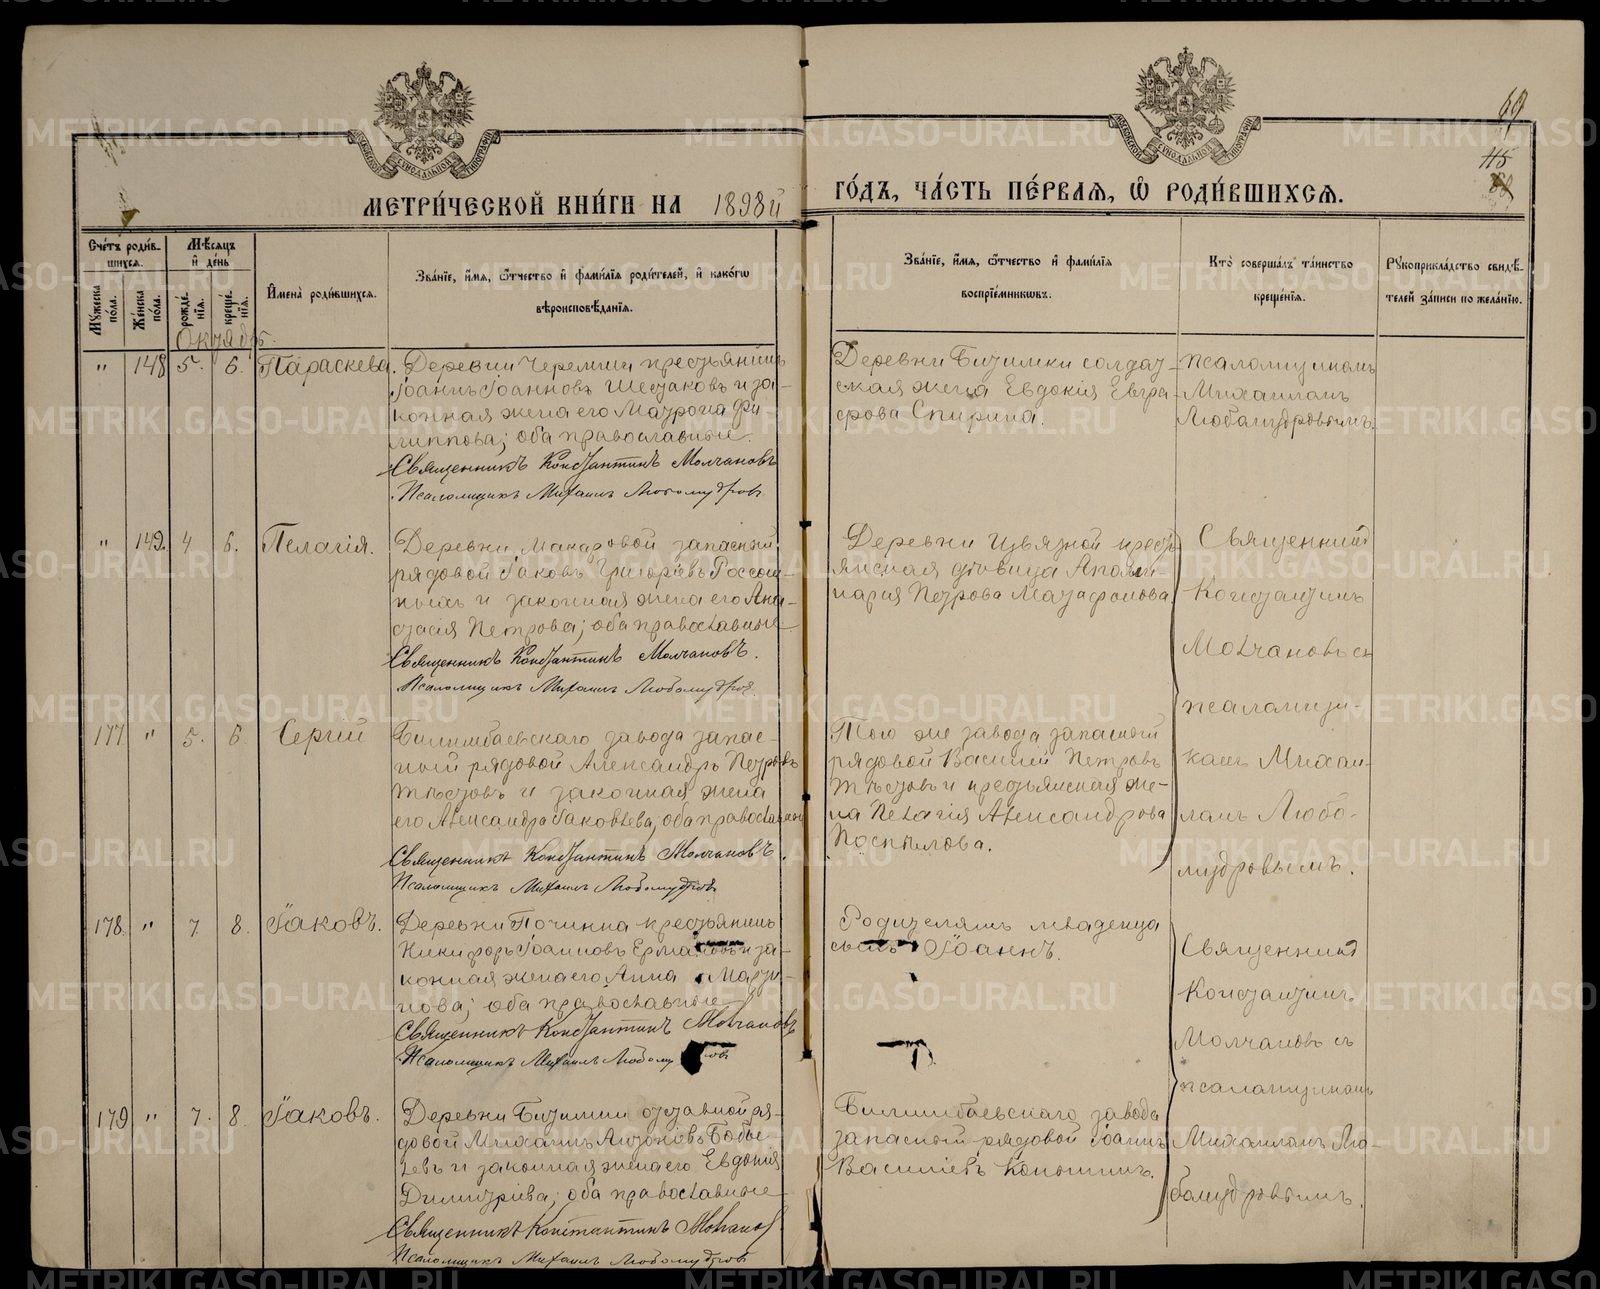 69
115
МЕТРИ́ЧЕСКОЙ КНИ́ГИ НА 1898й
ГО́ДЪ, ЧА́СТЬ ПЕ́РВАЯ, Ѡ РОДИ́ВШИХСЯ.
Сче́тъ роди́в-
шихся.
Му́жеска по́ла.
Же́нска по́ла.
Мѣ́сяцъ
и҆ де́нь
рожде́-
нїя.
креще́-
нїя.
И҆мена̀ роди́вшихся.
Зва́нїе, и҆́мя, ѻ҆́тчество и҆ фами́лїя роди́телей, и҆ како́гѡ
вѣроисповѣ́данїя.
Зва́нїе, и҆́мя, ѻ҆́тчество и҆ фами́лїя
воспрїе́мникѡвъ.
Кто̀ соверша́лъ та́инство
креще́нїя.
Рꙋкоприкла́дство свидѣ́-
телей за́писи по жела́нїю.
Октябрь.
" 148 5. 6. Параскева.
Деревни Черемши крестьянинъ
Іоаннъ Іоанновъ Шестаковъ и за-
конная жена его Матрона Фи-
липпова; оба православные.
Священникъ Константинъ Молчановъ
Псаломщикъ Михаилъ Любомудровъ
Деревни Битимки солдат-
ская жена Евдокія Евгра-
фова Спирина.
Псаломщикомъ
Михаиломъ
Любомудровымъ.
" 149. 4 6. Пелагія.
Деревни Макаровой запасный
рядовой Іаковъ Григорьевъ Россом-
ныхъ и законная жена его Ана-
стасія Петрова; оба православные
Священникъ Константинъ Молчановъ.
Псаломщикъ Михаилъ Любомудровъ.
Деревни Извязной кресть-
янская дѣвица Аполли-
нарія Петрова Матафонова.
Священник
Константинъ
Молчановъ съ
псаломщи-
комъ Михаи-
ломъ Любо-
мудровымъ.
177 " 5. 6. Сергій
Билимбаевскаго завода запас-
ный рядовой Александръ Петровъ
Тѣстовъ и законная жена
его Александра Іаковлева; оба православные
Священникъ Константинъ Молчановъ.
Псаломщикъ Михаилъ Любомудровъ
Того же завода запасный
рядовой Василій Петровъ
Тѣстовъ и крестьянская же-
на Пелагія Александрова
Поспѣлова.
178. " 7. 8. Іаковъ.
Деревни Починка крестьянинъ
Никифоръ Іоанновъ и за-
конная жена его Анна Марти-
нова; оба православные
Священникъ Константинъ Молчановъ
Псаломщикъ Михаилъ Любомудровъ
Родителямъ младенца
сынъ Іоаннъ.
Священник
Константинъ
Молчановъ съ
псаломщикомъ
Михаиломъ Лю-
бомудровымъ.
179 " 7. 8. Іаковъ.
Деревни Битимки отставной ря-
довой Михаилъ Антоновъ Бабы-
евъ и законная жена его Евдокія
Димитріева; оба православные
Священникъ Константинъ Молчановъ
Псаломщикъ Михаилъ Любомудровъ
Билимбаевскаго завода
запасный рядовой Іоаннъ
Василіевъ Конышинъ.
METRIKI.GASO-URAL.RU